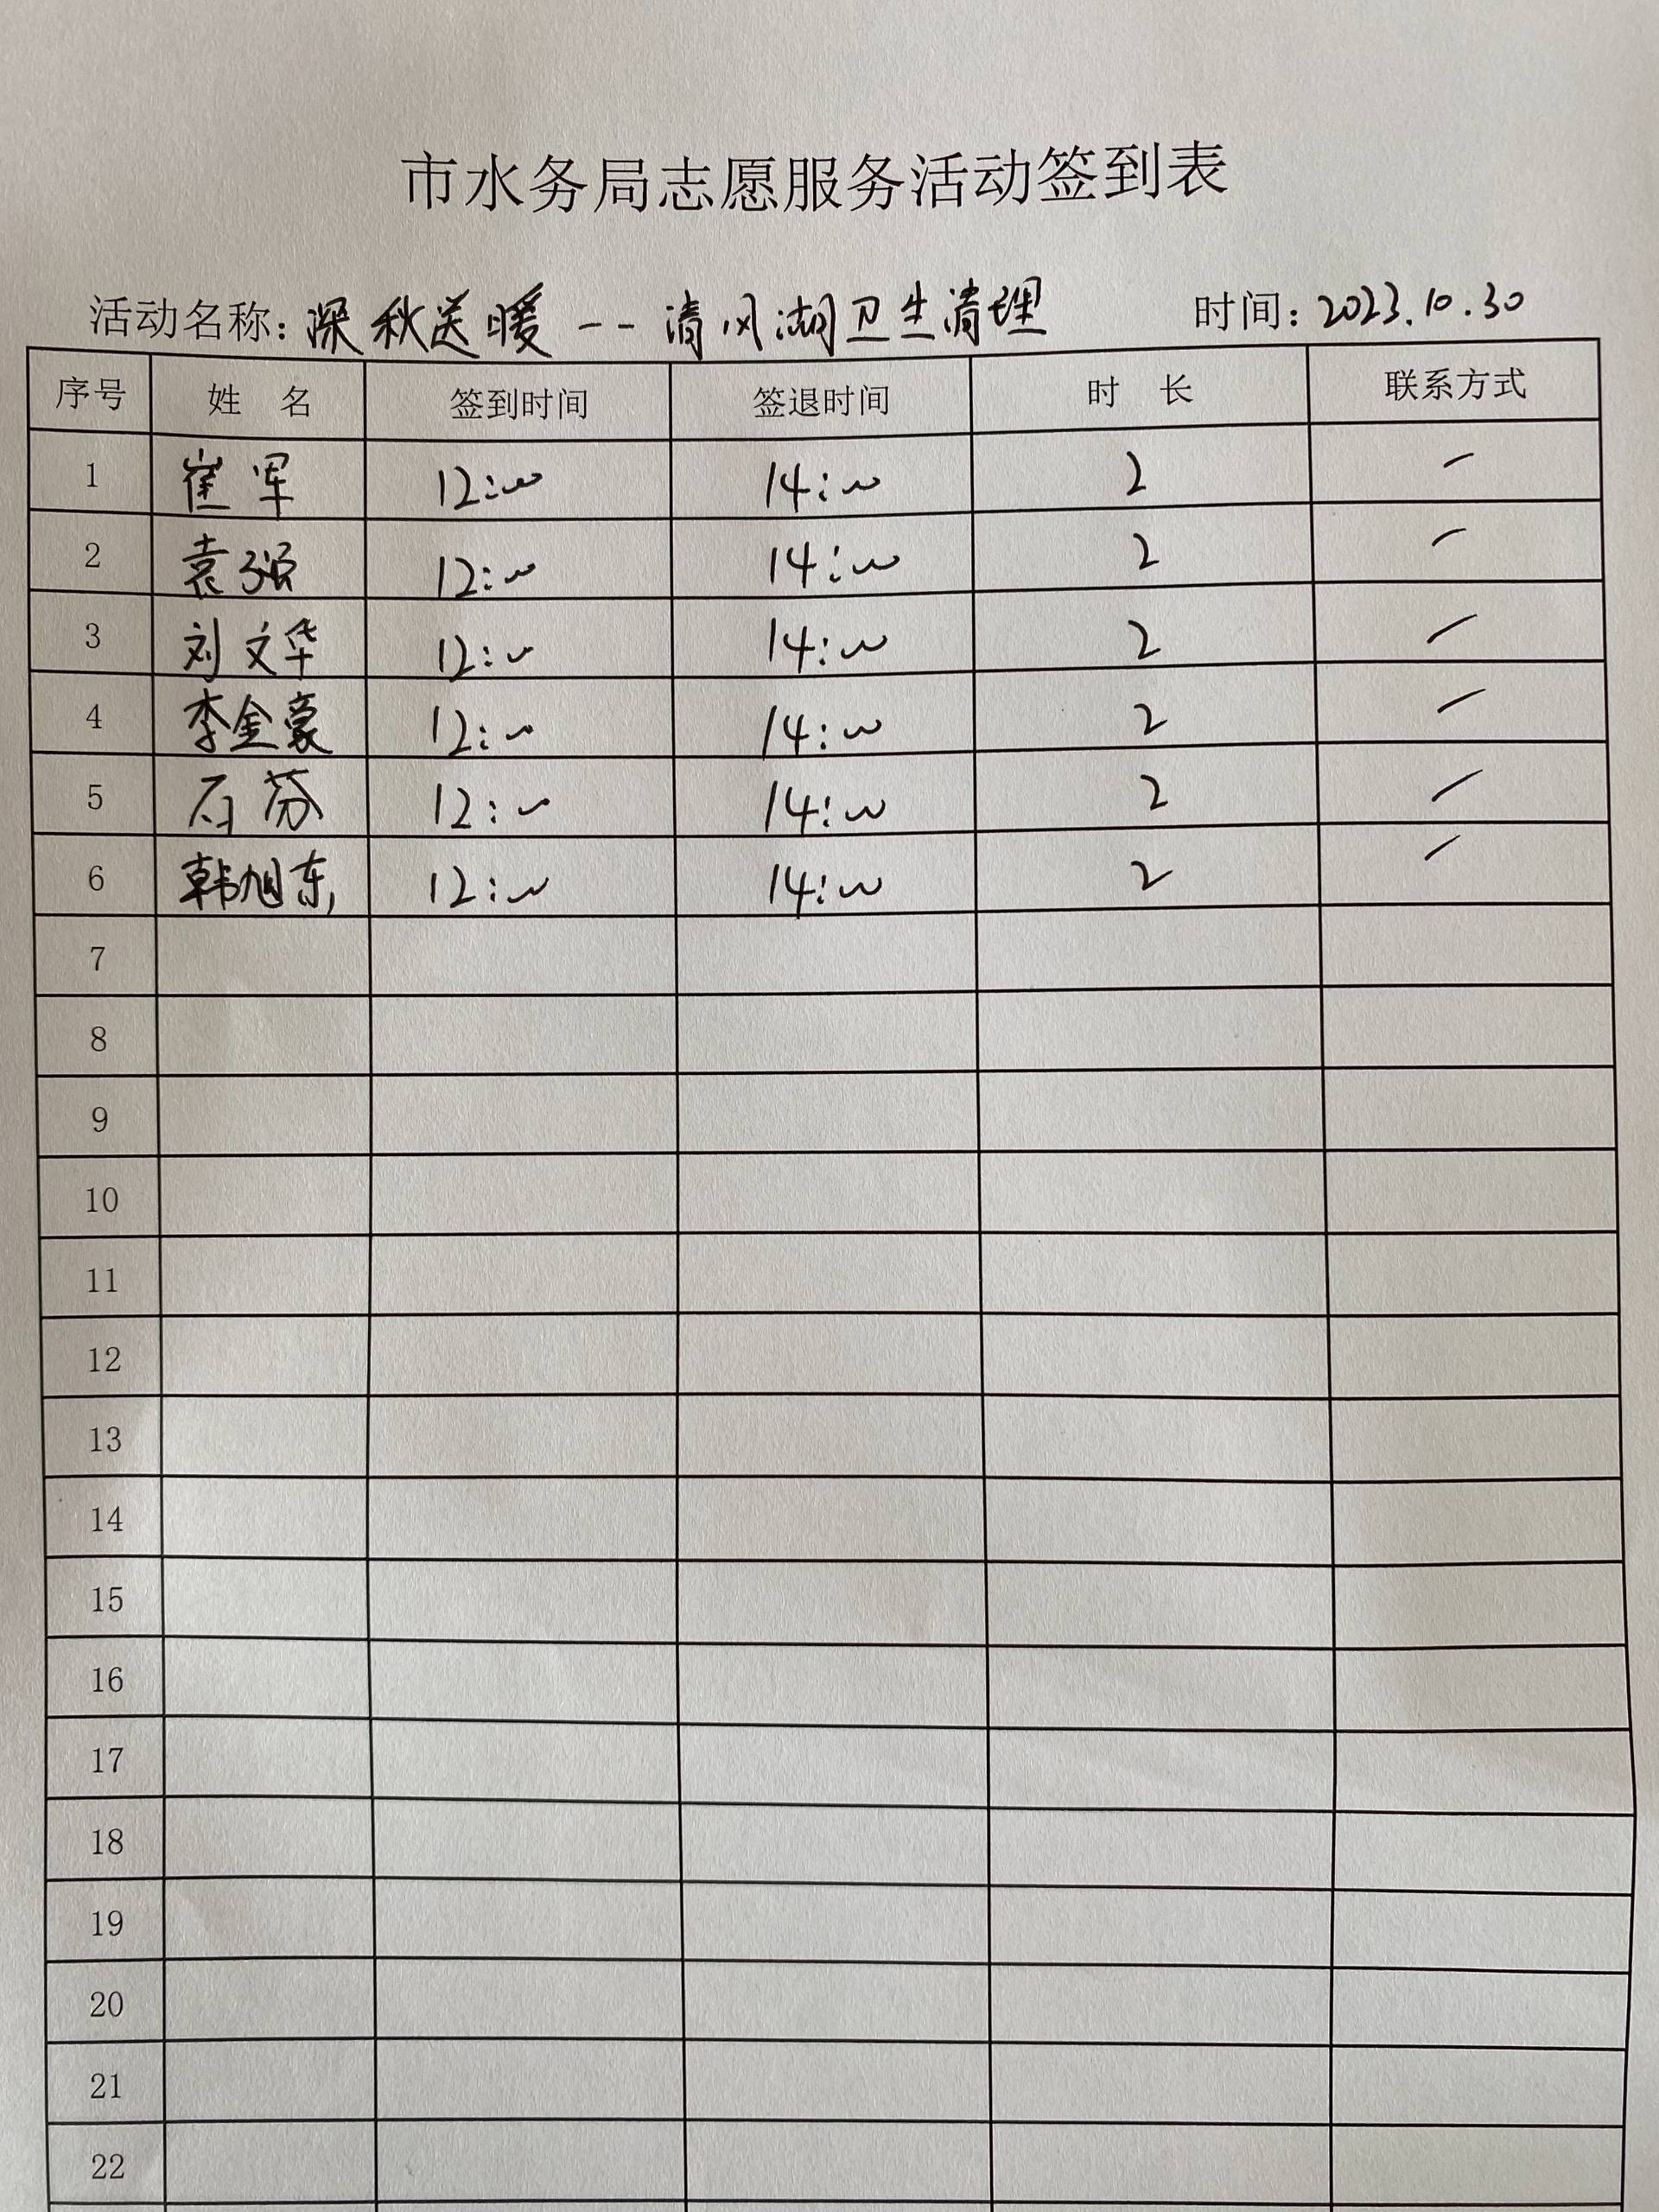 市水务局志愿服务活动签到表
活动名称: 深秋送暖 -- 清风湖卫生清理 时间: 2023.10.30
序号 姓 名 签到时间 签退时间 时 长 联系方式
1 崔军 12:00 14:00 2 一
2 袁强 12:00 14:00 2 一
3 刘文华 12:00 14:00 2 一
4 李金豪 12:00 14:00 2 一
5 石芬 12:00 14:00 2 一
6 韩旭东 12:00 14:00 2 一
7
8
9
10
11
12
13
14
15
16
17
18
19
20
21
22